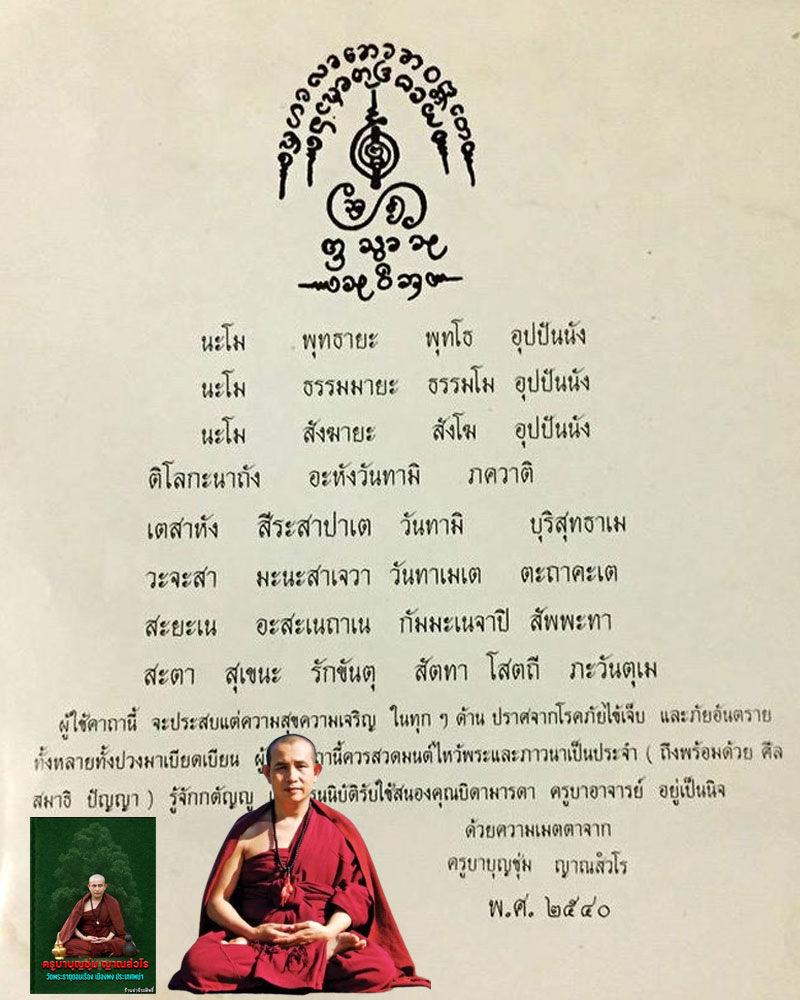 นะโม พุทธายะ พุทโธ อุปปันนัง
นะโม ธรรมมายะ ธรรมโม อุปปันนัง
นะโม สังฆายะ สังโฆ อุปปันนัง
ติโลกะนาถัง อะหังวันทามิ ภควาติ
เตสาหัง สีระสาปาเต วันทามิ บุริสุทธาเม
วะจะสา มะนะสาเจวา วันทาเมเต ตะถาคะเต
สะยะเน อะสะเนถาเน กัมมะเนจาปิ สัพพะทา
สะตา สุเขนะ รักขันตุ สัตทา โสตถี ภะวันตุเม
ผู้ใช้คาถานี้ จะประสบแต่ความสุขความเจริญ ในทุก ๆ ด้าน ปราศจากโรคภัยไข้เจ็บ และภัยอันตราย
ทั้งหลายทั้งปวงมาเบียดเบียน นี้ควรสวดมนต์ไหว้พระและภาวนาเป็นประจำ ( ถึงพร้อมด้วย ศีล
สมาธิ ปัญญา ) รู้จักกตัญญู รับใช้สนองคุณบิดามารดา ครูบาอาจารย์ อยู่เป็นนิจ
ด้วยความเมตตาจาก
ครูบาบุญชุ่ม ญาณสํวโร
พ.ศ. ๒๕๔๐
ครูบาบุญชุ่ม ญาณสํวโร
วัดพระธาตุดอนเรือง เมืองพง ประเทศพม่า